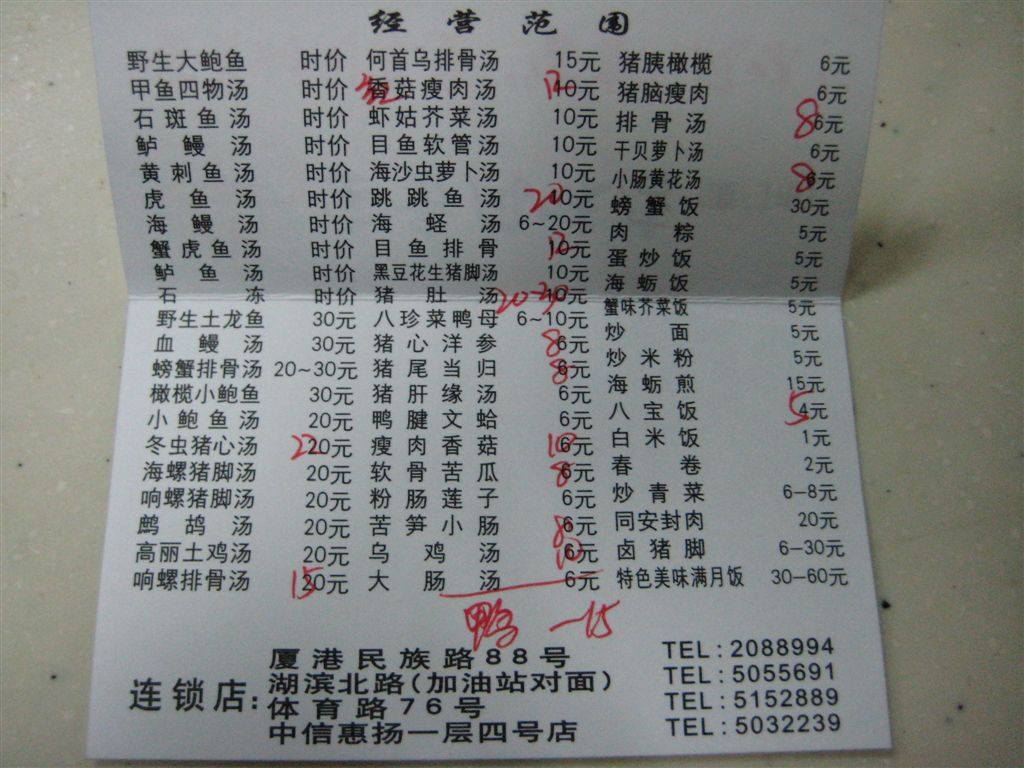 经营范围
野生大鲍鱼 时价 何首乌排骨汤 15元 猪胰橄榄 6元
甲鱼四物汤 时价 香菇瘦肉汤 10元 猪脑瘦肉 6元
石斑鱼汤 时价 虾姑芥菜汤 10元 排骨汤 8 6元
鲈鳗汤 时价 目鱼软管汤 10元 干贝萝卜汤 6元
黄刺鱼汤 时价 海沙虫萝卜汤 10元 小肠黄花汤 8 6元
虎鱼汤 时价 跳跳鱼汤 20 10元 螃蟹饭 30元
海鳗汤 时价 海蛏汤 6~20元 肉粽 5元
蟹虎鱼汤 时价 目鱼排骨 12 10元 蛋炒饭 5元
鲈鱼汤 时价 黑豆花生猪脚汤 10元 海蛎饭 5元
石冻 时价 猪肚汤 20-30 10元 蟹味芥菜饭 5元
野生土龙鱼 30元 八珍菜鸭母 6~10元 炒面 5元
血鳗汤 30元 猪心洋参 8 6元 炒米粉 5元
螃蟹排骨汤 20~30元 猪尾当归 8 6元 海蛎煎 15元
橄榄小鲍鱼 30元 猪肝缘汤 6元 八宝饭 5 4元
小鲍鱼汤 20元 鸭腱文蛤 6元 白米饭 1元
冬虫猪心汤 22 20元 瘦肉香菇 10 6元 春卷 2元
海螺猪脚汤 20元 软骨苦瓜 8 6元 炒青菜 6-8元
响螺猪脚汤 20元 粉肠莲子 6元 同安封肉 20元
鹧鸪汤 20元 苦笋小肠 8 6元 卤猪脚 6-30元
高丽土鸡汤 20元 乌鸡汤 10 6元 特色美味满月饭 30-60元
响螺排骨汤 15 20元 大肠汤 6元
鸭 一15
连锁店:
厦港民族路88号 TEL:2088994
湖滨北路(加油站对面) TEL:5055691
体育路76号 TEL:5152889
中信惠扬一层四号店 TEL:5032239